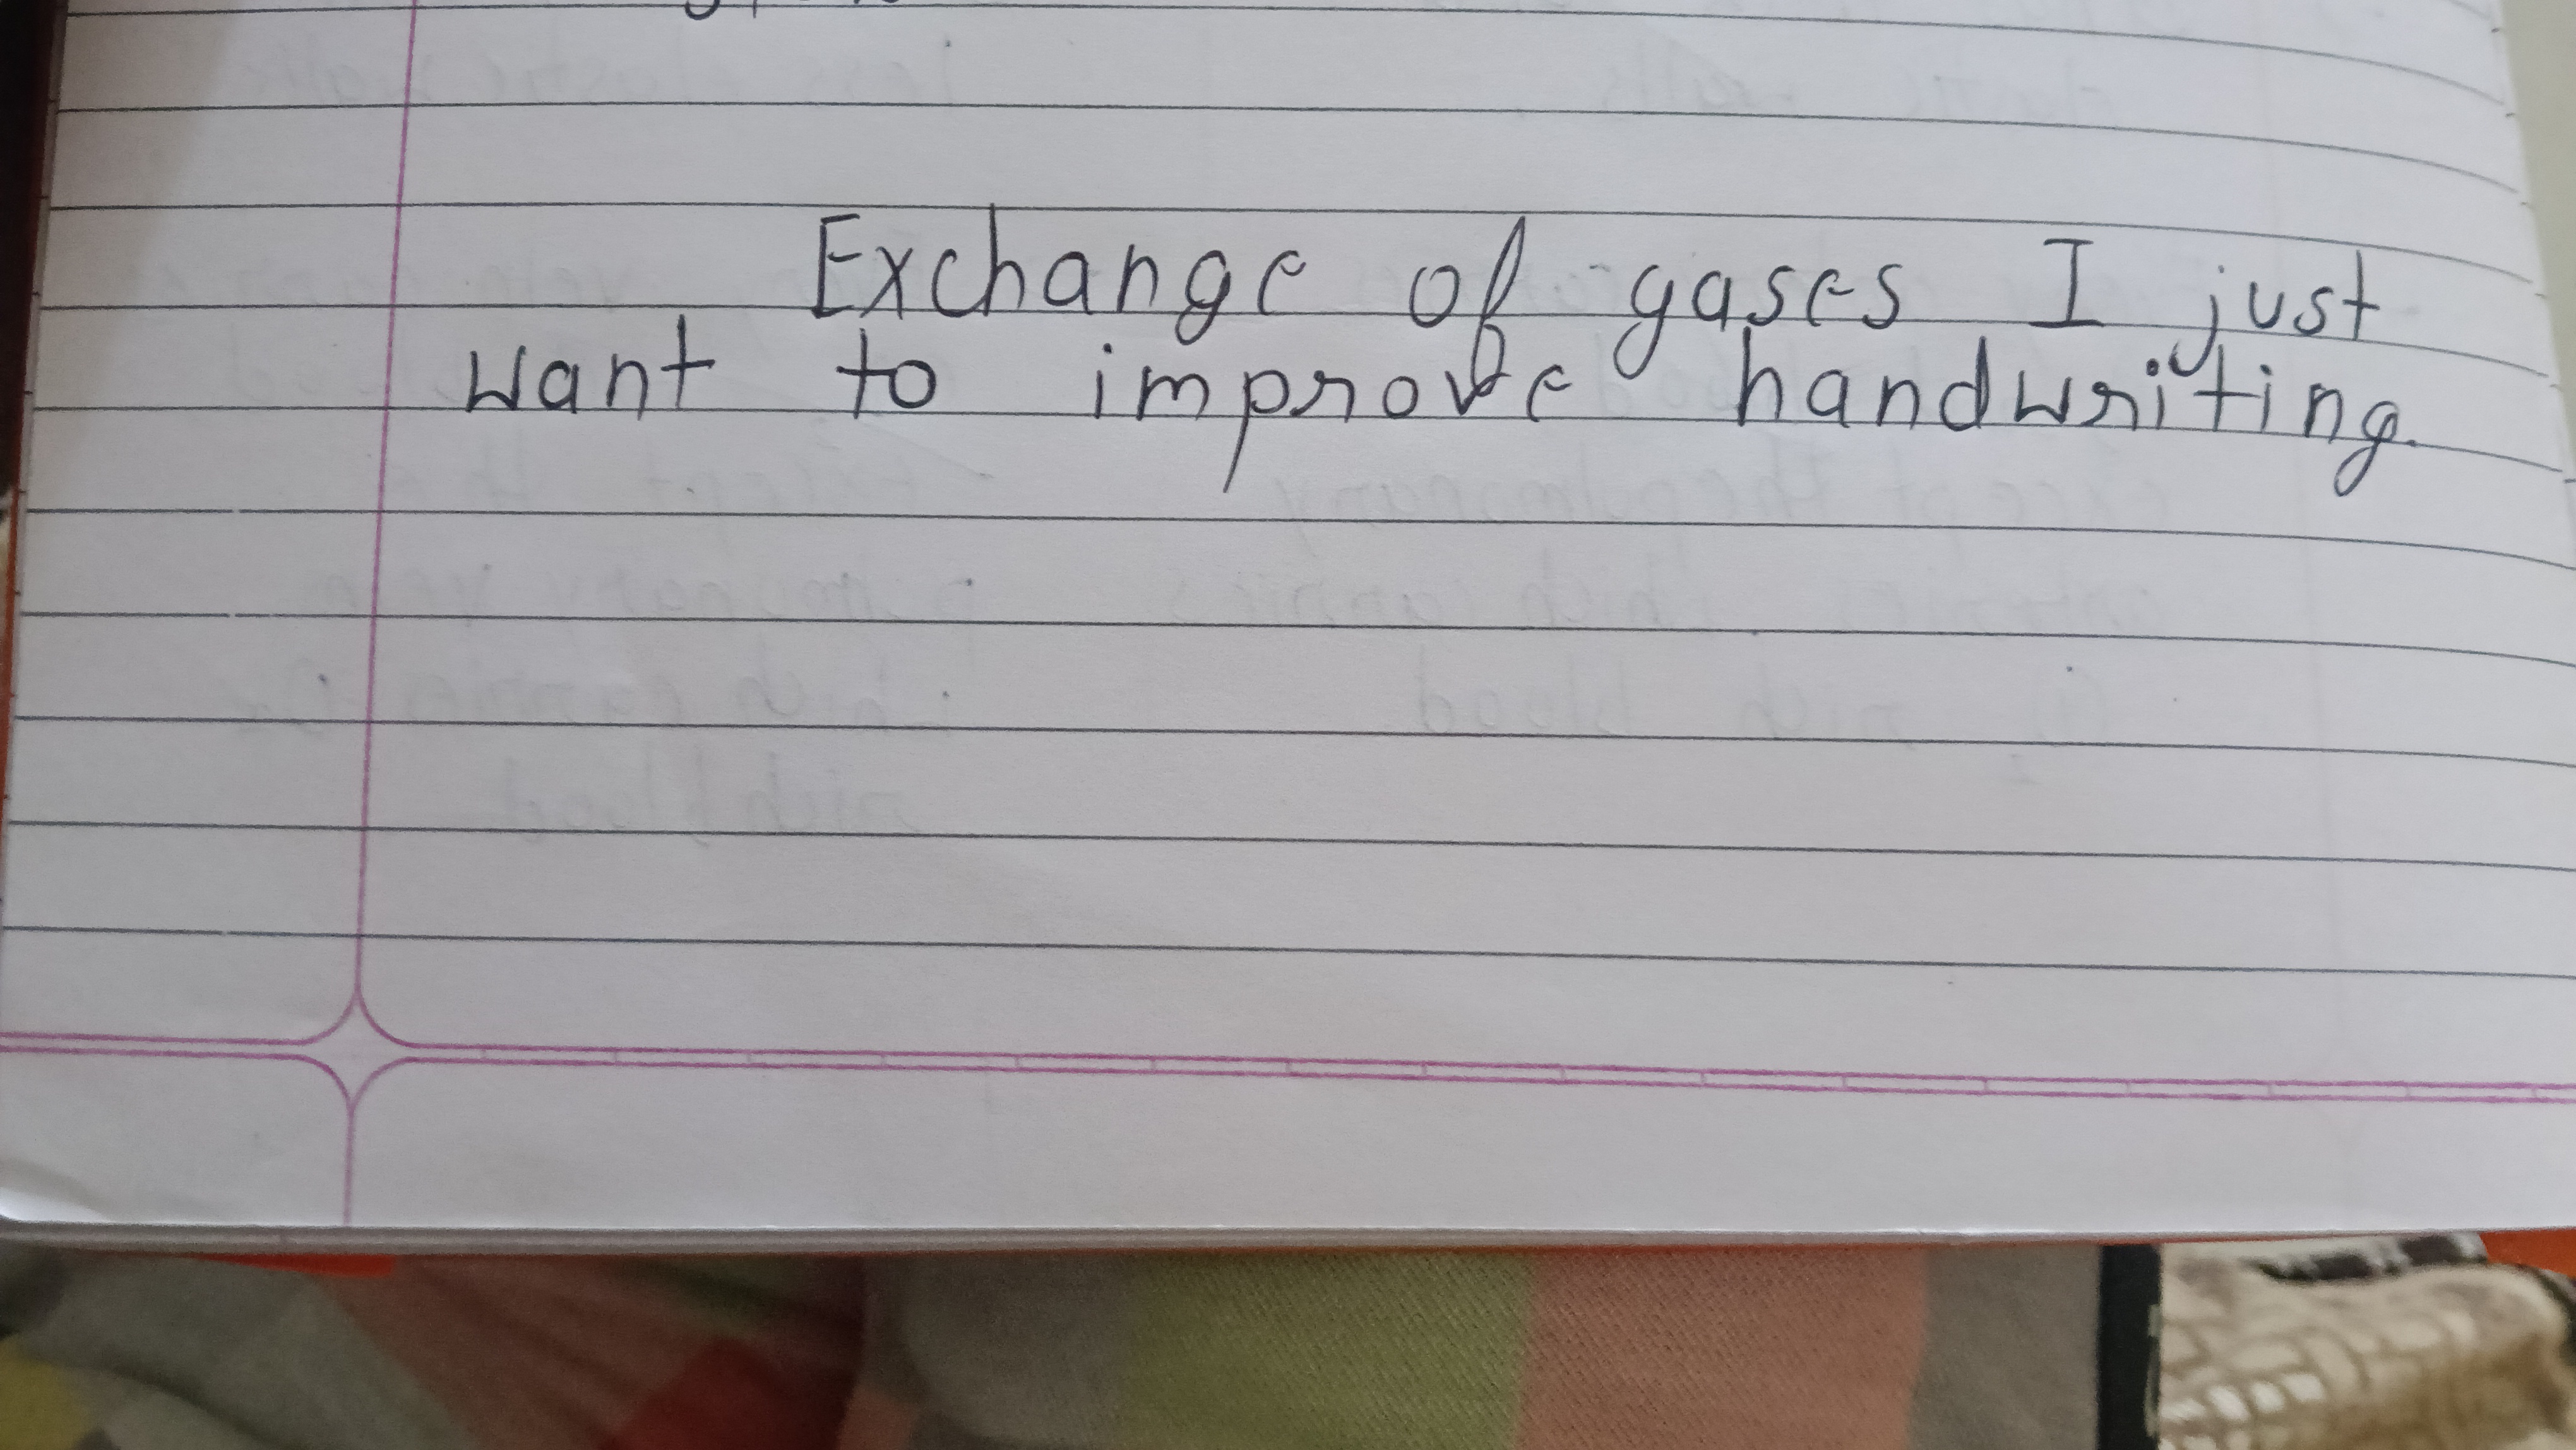 Exchange of gases I just
want to improve handwriting.